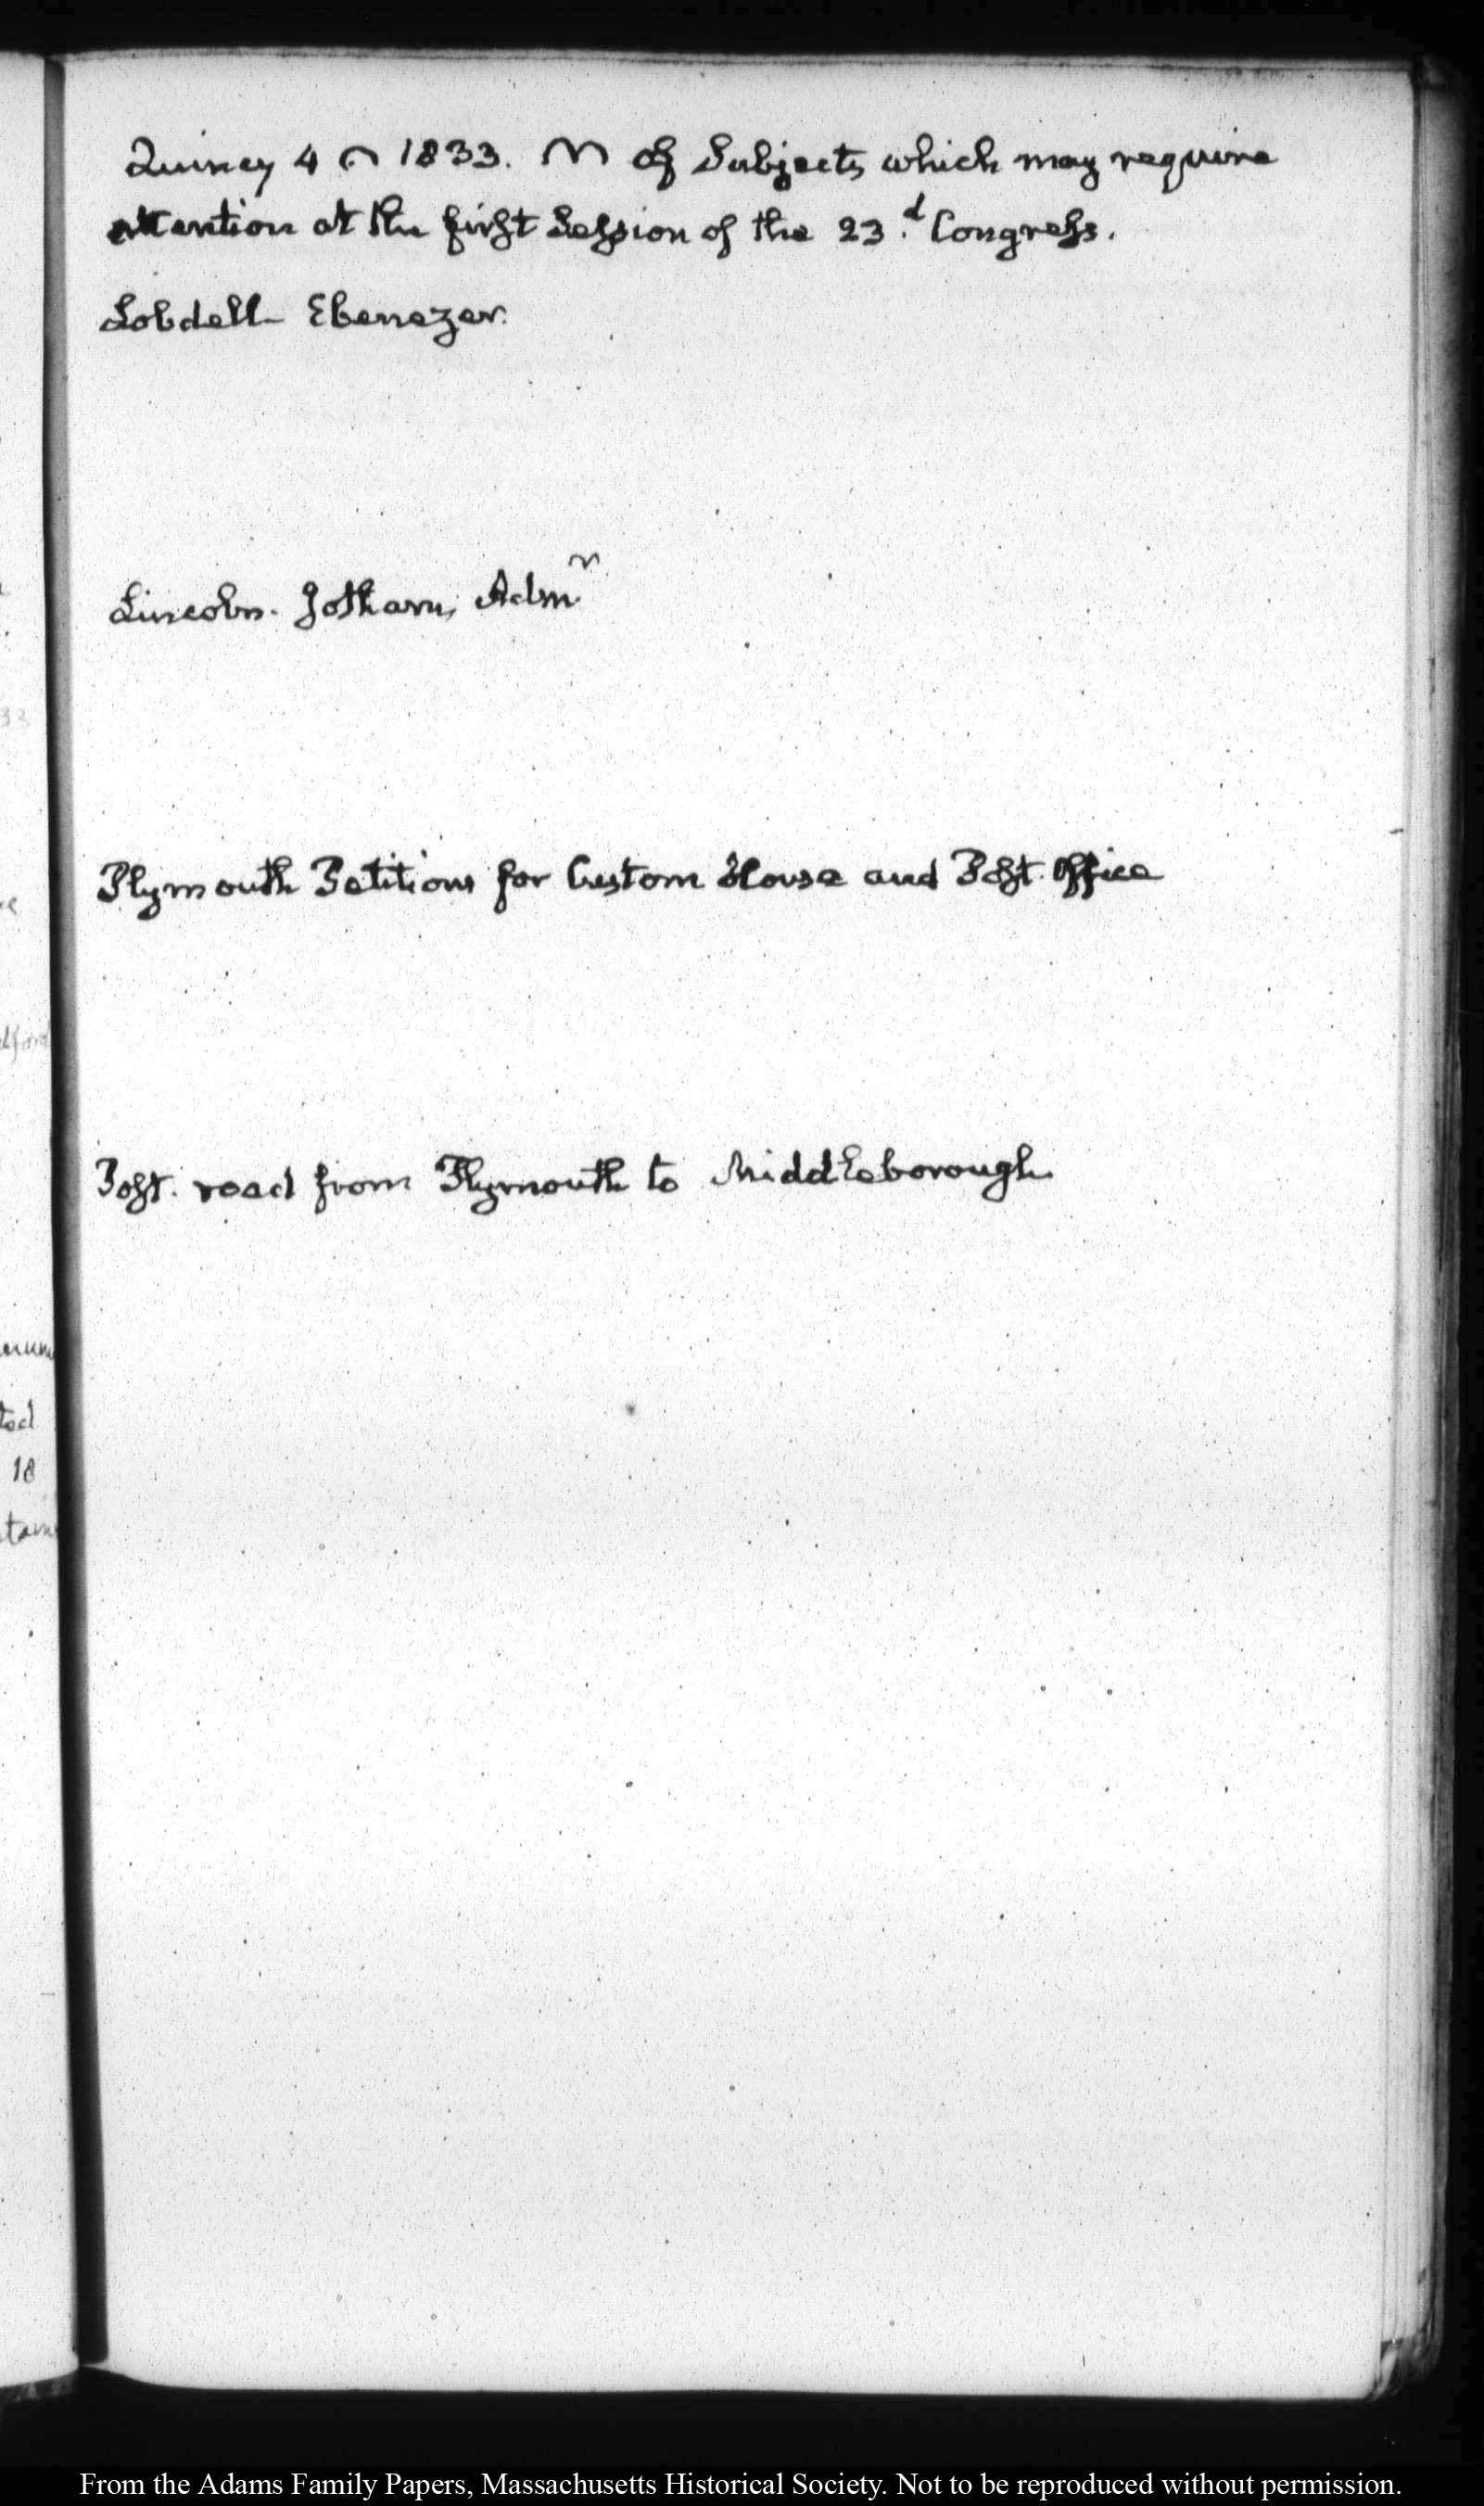 Quincy 4 1833. of Subjects which may require
attention at the first Session of the 23.d Congress.
Lobdell Ebenezer.
Lincoln. Jotham, Admr
Plymouth Petitions for Custom House and Post Office
Post. road from Plymouth to Middleborough
33
ted
18
From the Adams Family Papers, Massachusetts Historical Society. Not to be reproduced without permission.